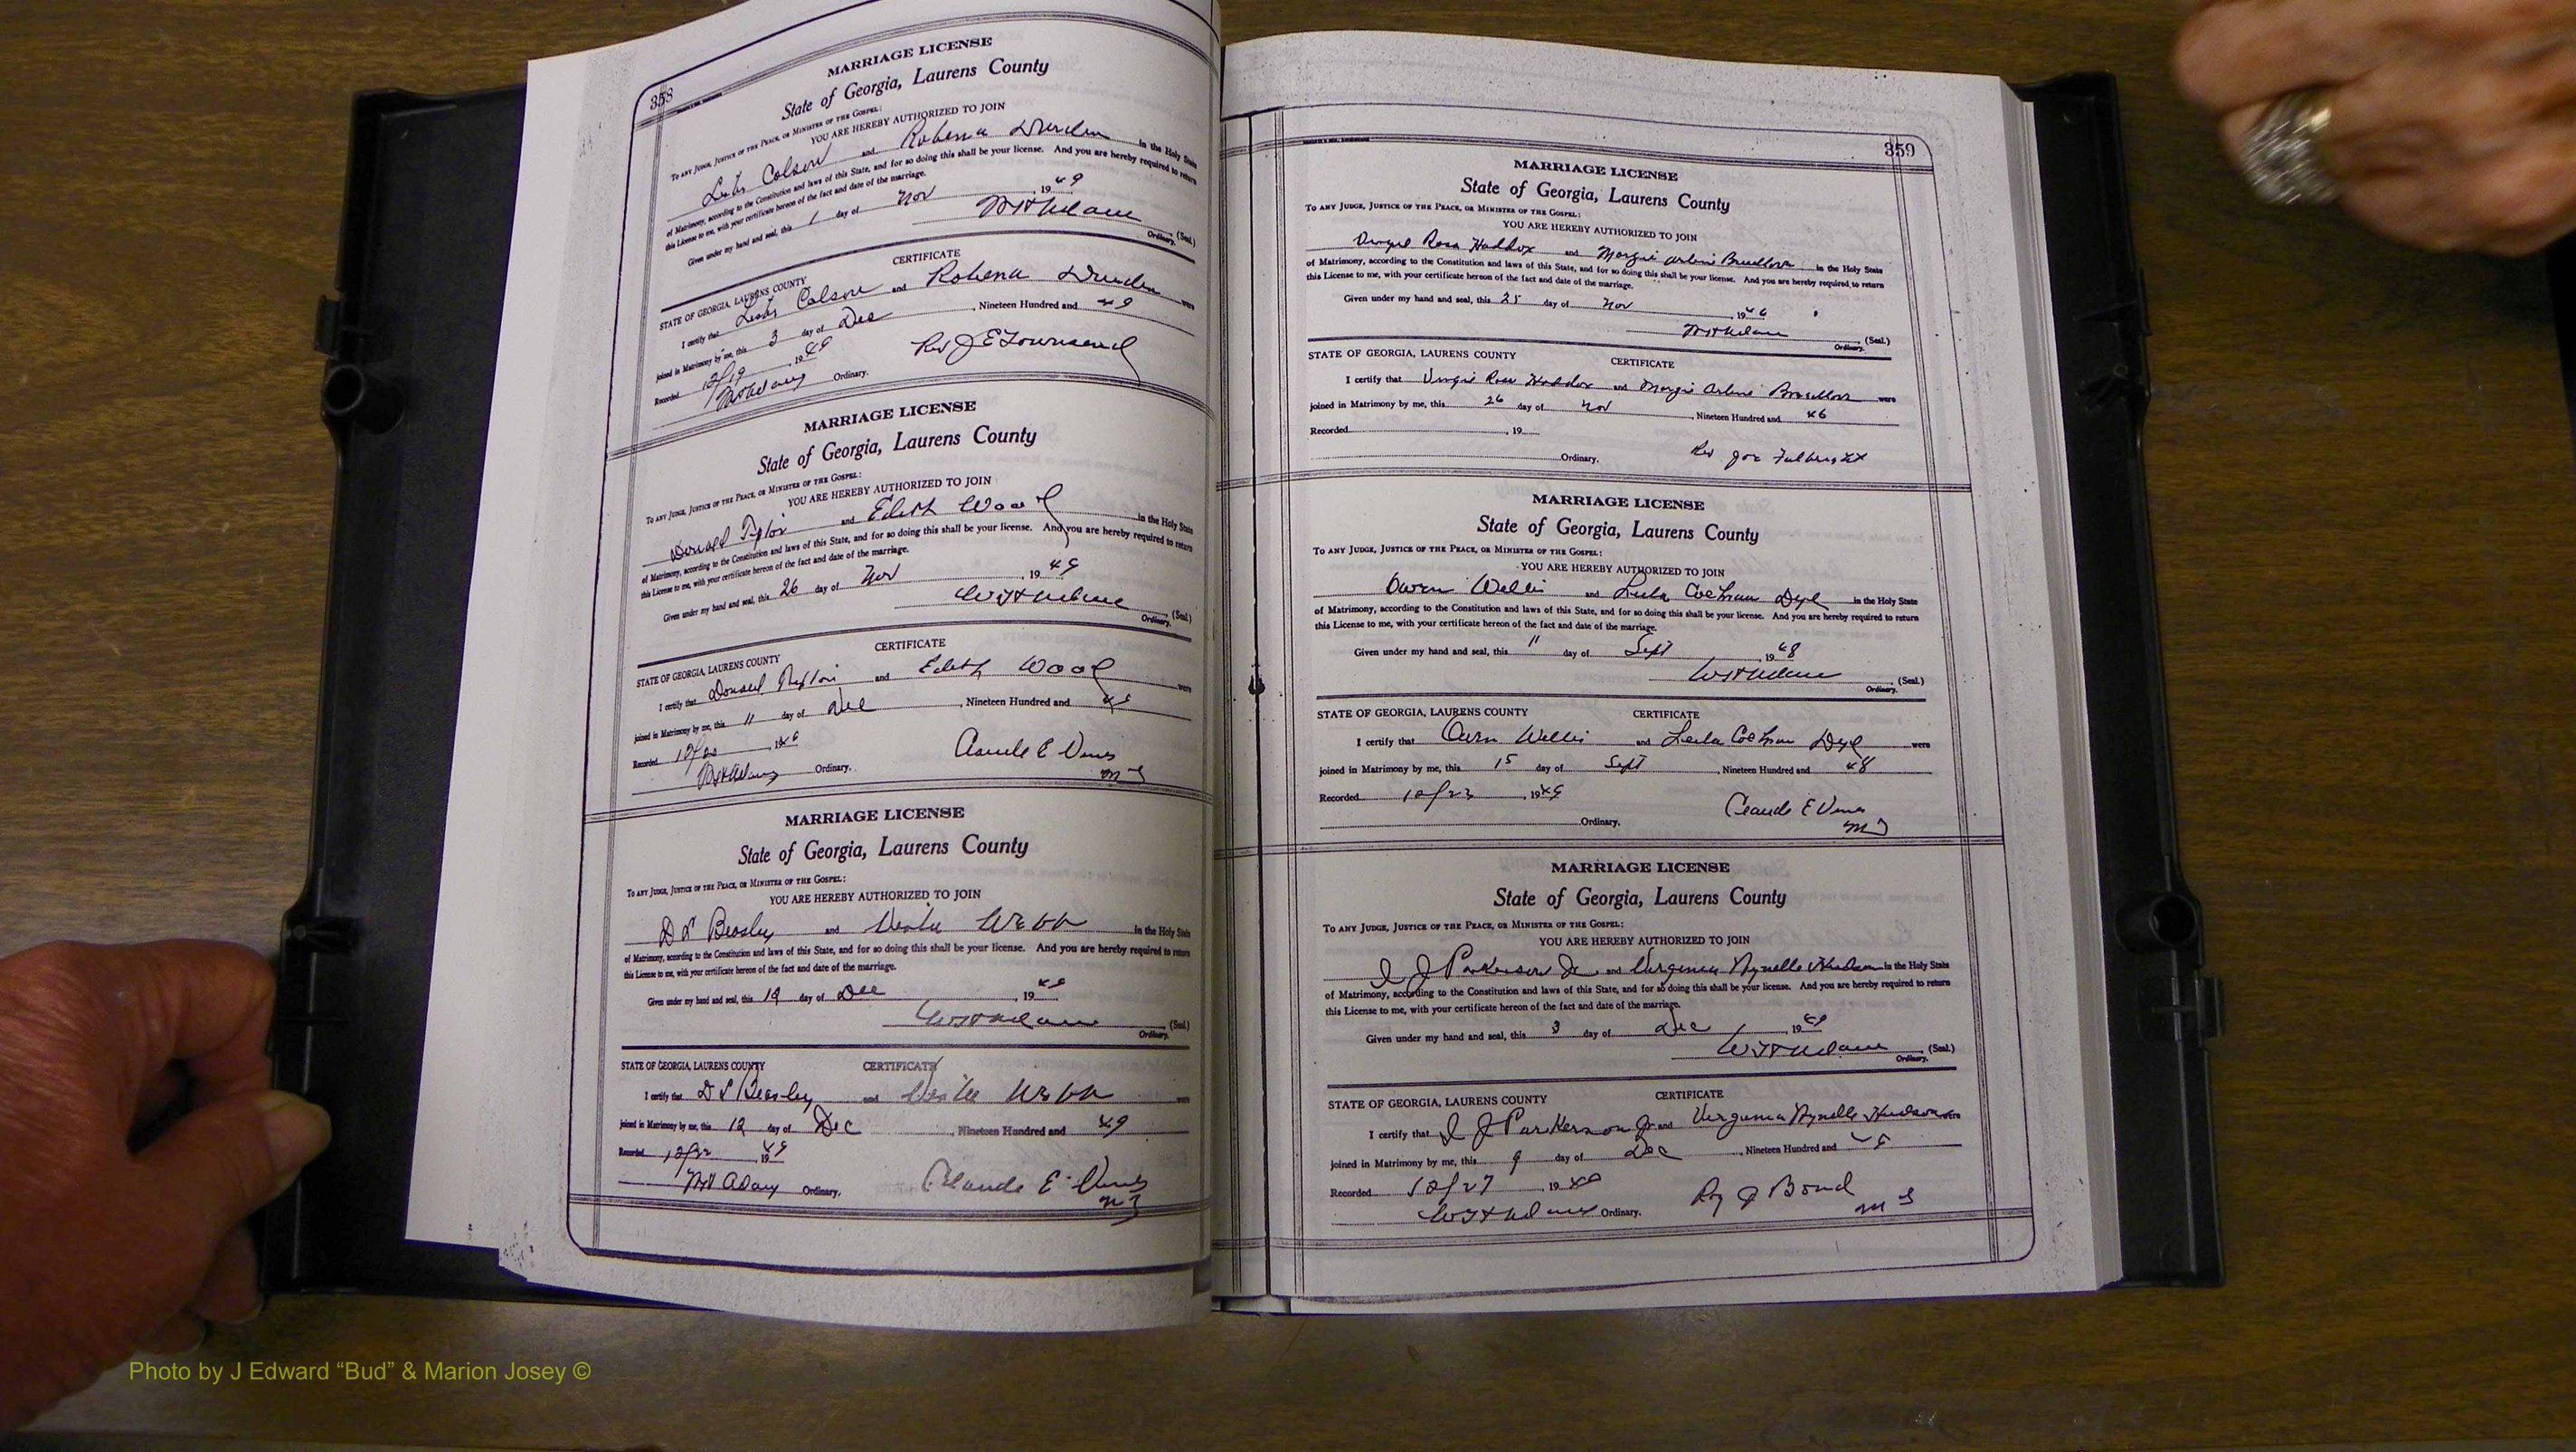 358
MARRIAGE LICENSE
State of Georgia, Laurens County
To any Judge, Justice of the Peace, or Minister of the Gospel:
YOU ARE HEREBY AUTHORIZED TO JOIN
Colson and Rohena in the Holy State
of Matrimony, according to the Constitution and laws of this State, and for so doing this shall be your license. And you are hereby required to return
this License to me, with your certificate hereon of the fact and date of the marriage.
Given under my hand and seal, this 1 day of Nov 1949
(Seal.)
Ordinary.
CERTIFICATE
STATE OF GEORGIA, LAURENS COUNTY
I certify that Colson and Rohena were
joined in Matrimony by me, this 3 day of Dec, Nineteen Hundred and 49
Recorded 12/19, 1949 Rev J E Townsend
Ordinary.
MARRIAGE LICENSE
State of Georgia, Laurens County
To any Judge, Justice of the Peace, or Minister of the Gospel:
YOU ARE HEREBY AUTHORIZED TO JOIN
Donald and Edith Wood in the Holy State
of Matrimony, according to the Constitution and laws of this State, and for so doing this shall be your license. And you are hereby required to return
this License to me, with your certificate hereon of the fact and date of the marriage.
Given under my hand and seal, this 26 day of Nov, 1949
(Seal.)
Ordinary.
CERTIFICATE
STATE OF GEORGIA, LAURENS COUNTY
I certify that Donald and Edith Wood were
joined in Matrimony by me, this 11 day of Dec, Nineteen Hundred and
Recorded Claude E Vines
Ordinary.
MARRIAGE LICENSE
State of Georgia, Laurens County
To any Judge, Justice of the Peace, or Minister of the Gospel:
YOU ARE HEREBY AUTHORIZED TO JOIN
D L Beasley and Webb in the Holy State
of Matrimony, according to the Constitution and laws of this State, and for so doing this shall be your license. And you are hereby required to return
this License to me, with your certificate hereon of the fact and date of the marriage.
Given under my hand and seal, this 12 day of Dec, 1949
(Seal.)
Ordinary.
STATE OF GEORGIA, LAURENS COUNTY CERTIFICATE
I certify that D L Beasley and Webb were
joined in Matrimony by me, this 12 day of Dec, Nineteen Hundred and 49
Recorded 12/22, 1949
Ordinary. Claude E. Vines
359
MARRIAGE LICENSE
State of Georgia, Laurens County
To any Judge, Justice of the Peace, or Minister of the Gospel:
YOU ARE HEREBY AUTHORIZED TO JOIN
Haddox and Margie Arline in the Holy State
of Matrimony, according to the Constitution and laws of this State, and for so doing this shall be your license. And you are hereby required to return
this License to me, with your certificate hereon of the fact and date of the marriage.
Given under my hand and seal, this 25 day of Nov, 1946
(Seal.)
Ordinary.
STATE OF GEORGIA, LAURENS COUNTY CERTIFICATE
I certify that Haddox and Margie Arline were
joined in Matrimony by me, this 26 day of Nov, Nineteen Hundred and 46
Recorded, 19
Ordinary. Rev Joe Fulbright
MARRIAGE LICENSE
State of Georgia, Laurens County
To any Judge, Justice of the Peace, or Minister of the Gospel:
YOU ARE HEREBY AUTHORIZED TO JOIN
Owen Willis and Leila Cochran in the Holy State
of Matrimony, according to the Constitution and laws of this State, and for so doing this shall be your license. And you are hereby required to return
this License to me, with your certificate hereon of the fact and date of the marriage.
Given under my hand and seal, this 11 day of Sept, 1948
(Seal.)
Ordinary.
STATE OF GEORGIA, LAURENS COUNTY CERTIFICATE
I certify that Owen Willis and Leila Cochran were
joined in Matrimony by me, this 15 day of Sept, Nineteen Hundred and 48
Recorded 12/23, 1949
Ordinary. Claude E Vines
MARRIAGE LICENSE
State of Georgia, Laurens County
To any Judge, Justice of the Peace, or Minister of the Gospel:
YOU ARE HEREBY AUTHORIZED TO JOIN
I J Parkerson Jr and Virginia Nynelle Hudson in the Holy State
of Matrimony, according to the Constitution and laws of this State, and for so doing this shall be your license. And you are hereby required to return
this License to me, with your certificate hereon of the fact and date of the marriage.
Given under my hand and seal, this 3 day of Dec, 1949
(Seal.)
Ordinary.
STATE OF GEORGIA, LAURENS COUNTY CERTIFICATE
I certify that I J Parkerson Jr and Virginia Nynelle Hudson were
joined in Matrimony by me, this 9 day of Dec, Nineteen Hundred and
Recorded 12/27, 19
Ordinary. Roy J Bond
Photo by J Edward “Bud” & Marion Josey ©